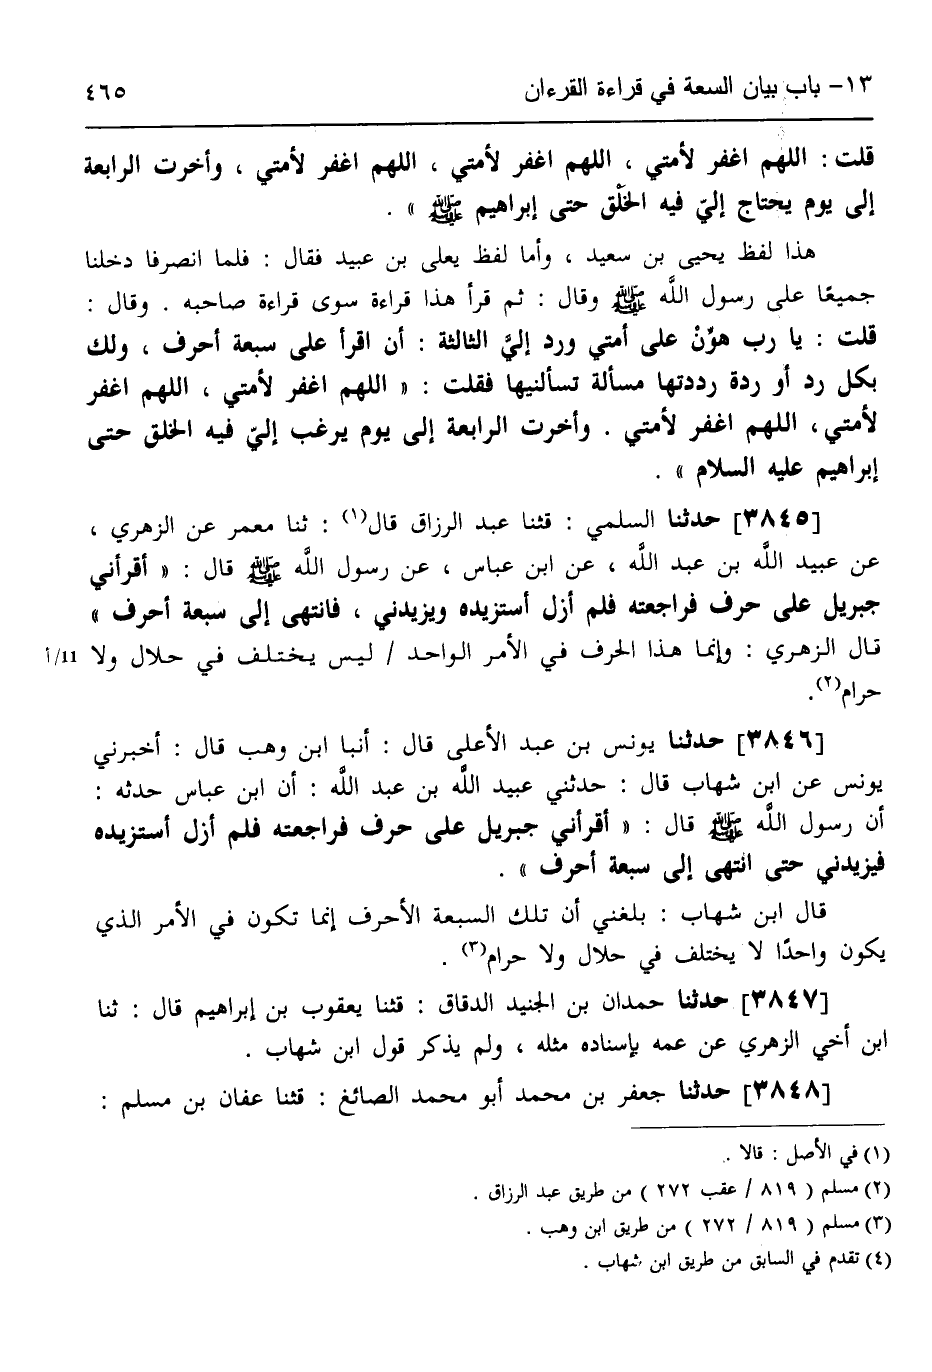 ١٣- باب بيان السعة في قراءة القرءان ٤٦٥
قلت : اللهم اغفر لأمتي ، اللهم اغفر لأمتي ، اللهم اغفر لأمتي ، وأخرت الرابعة
إلى يوم يحتاج إليّ فيه الخَلْق حتى إبراهيم ﷺ » .
هذا لفظ يحيى بن سعيد ، وأما لفظ يعلى بن عبيد فقال : فلما انصرفا دخلنا
جميعًا على رسول اللَّه ﷺ وقال : ثم قرأ هذا قراءة سوى قراءة صاحبه . وقال :
قلت : يا رب هوِّنْ على أمتي ورد إليَّ الثالثة : أن اقرأ على سبعة أحرف ، ولك
بكل رد أو ردة رددتها مسألة تسألنيها فقلت : « اللهم اغفر لأمتي ، اللهم اغفر
لأمتي، اللهم اغفر لأمتي . وأخرت الرابعة إلى يوم يرغب إليّ فيه الخلق حتى
إبراهيم عليه السلام » .
[٣٨٤٥] حدثنا السلمي : قثنا عبد الرزاق قال(١) : ثنا معمر عن الزهري ،
عن عبيد اللَّه بن عبد اللَّه ، عن ابن عباس ، عن رسول اللَّه ﷺ قال : « أقرأني
جبريل على حرف فراجعته فلم أزل أستزيده ويزيدني ، فانتهى إلى سبعة أحرف »
قال الزهري : وإنما هذا الحرف في الأمر الواحد / ليس يختلف في حلال ولا 11/أ
حرام(٢).
[٣٨٤٦] حدثنا يونس بن عبد الأعلى قال : أنبا ابن وهب قال : أخبرني
يونس عن ابن شهاب قال : حدثني عبيد اللَّه بن عبد اللَّه : أن ابن عباس حدثه :
أن رسول اللَّه ﷺ قال : « أقرأني جبريل على حرف فراجعته فلم أزل أستزيده
فيزيدني حتى انتهى إلى سبعة أحرف » .
قال ابن شهاب : بلغني أن تلك السبعة الأحرف إنما تكون في الأمر الذي
يكون واحدًا لا يختلف في حلال ولا حرام(٣) .
[٣٨٤٧] حدثنا حمدان بن الجنيد الدقاق : قثنا يعقوب بن إبراهيم قال : ثنا
ابن أخي الزهري عن عمه بإسناده مثله ، ولم يذكر قول ابن شهاب .
[٣٨٤٨] حدثنا جعفر بن محمد أبو محمد الصائغ : قثنا عفان بن مسلم :
(١) في الأصل : قالا .
(٢) مسلم ( ٨١٩ / عقب ٢٧٢ ) من طريق عبد الرزاق .
(٣) مسلم ( ٨١٩ / ٢٧٢ ) من طريق ابن وهب .
(٤) تقدم في السابق من طريق ابن شهاب .